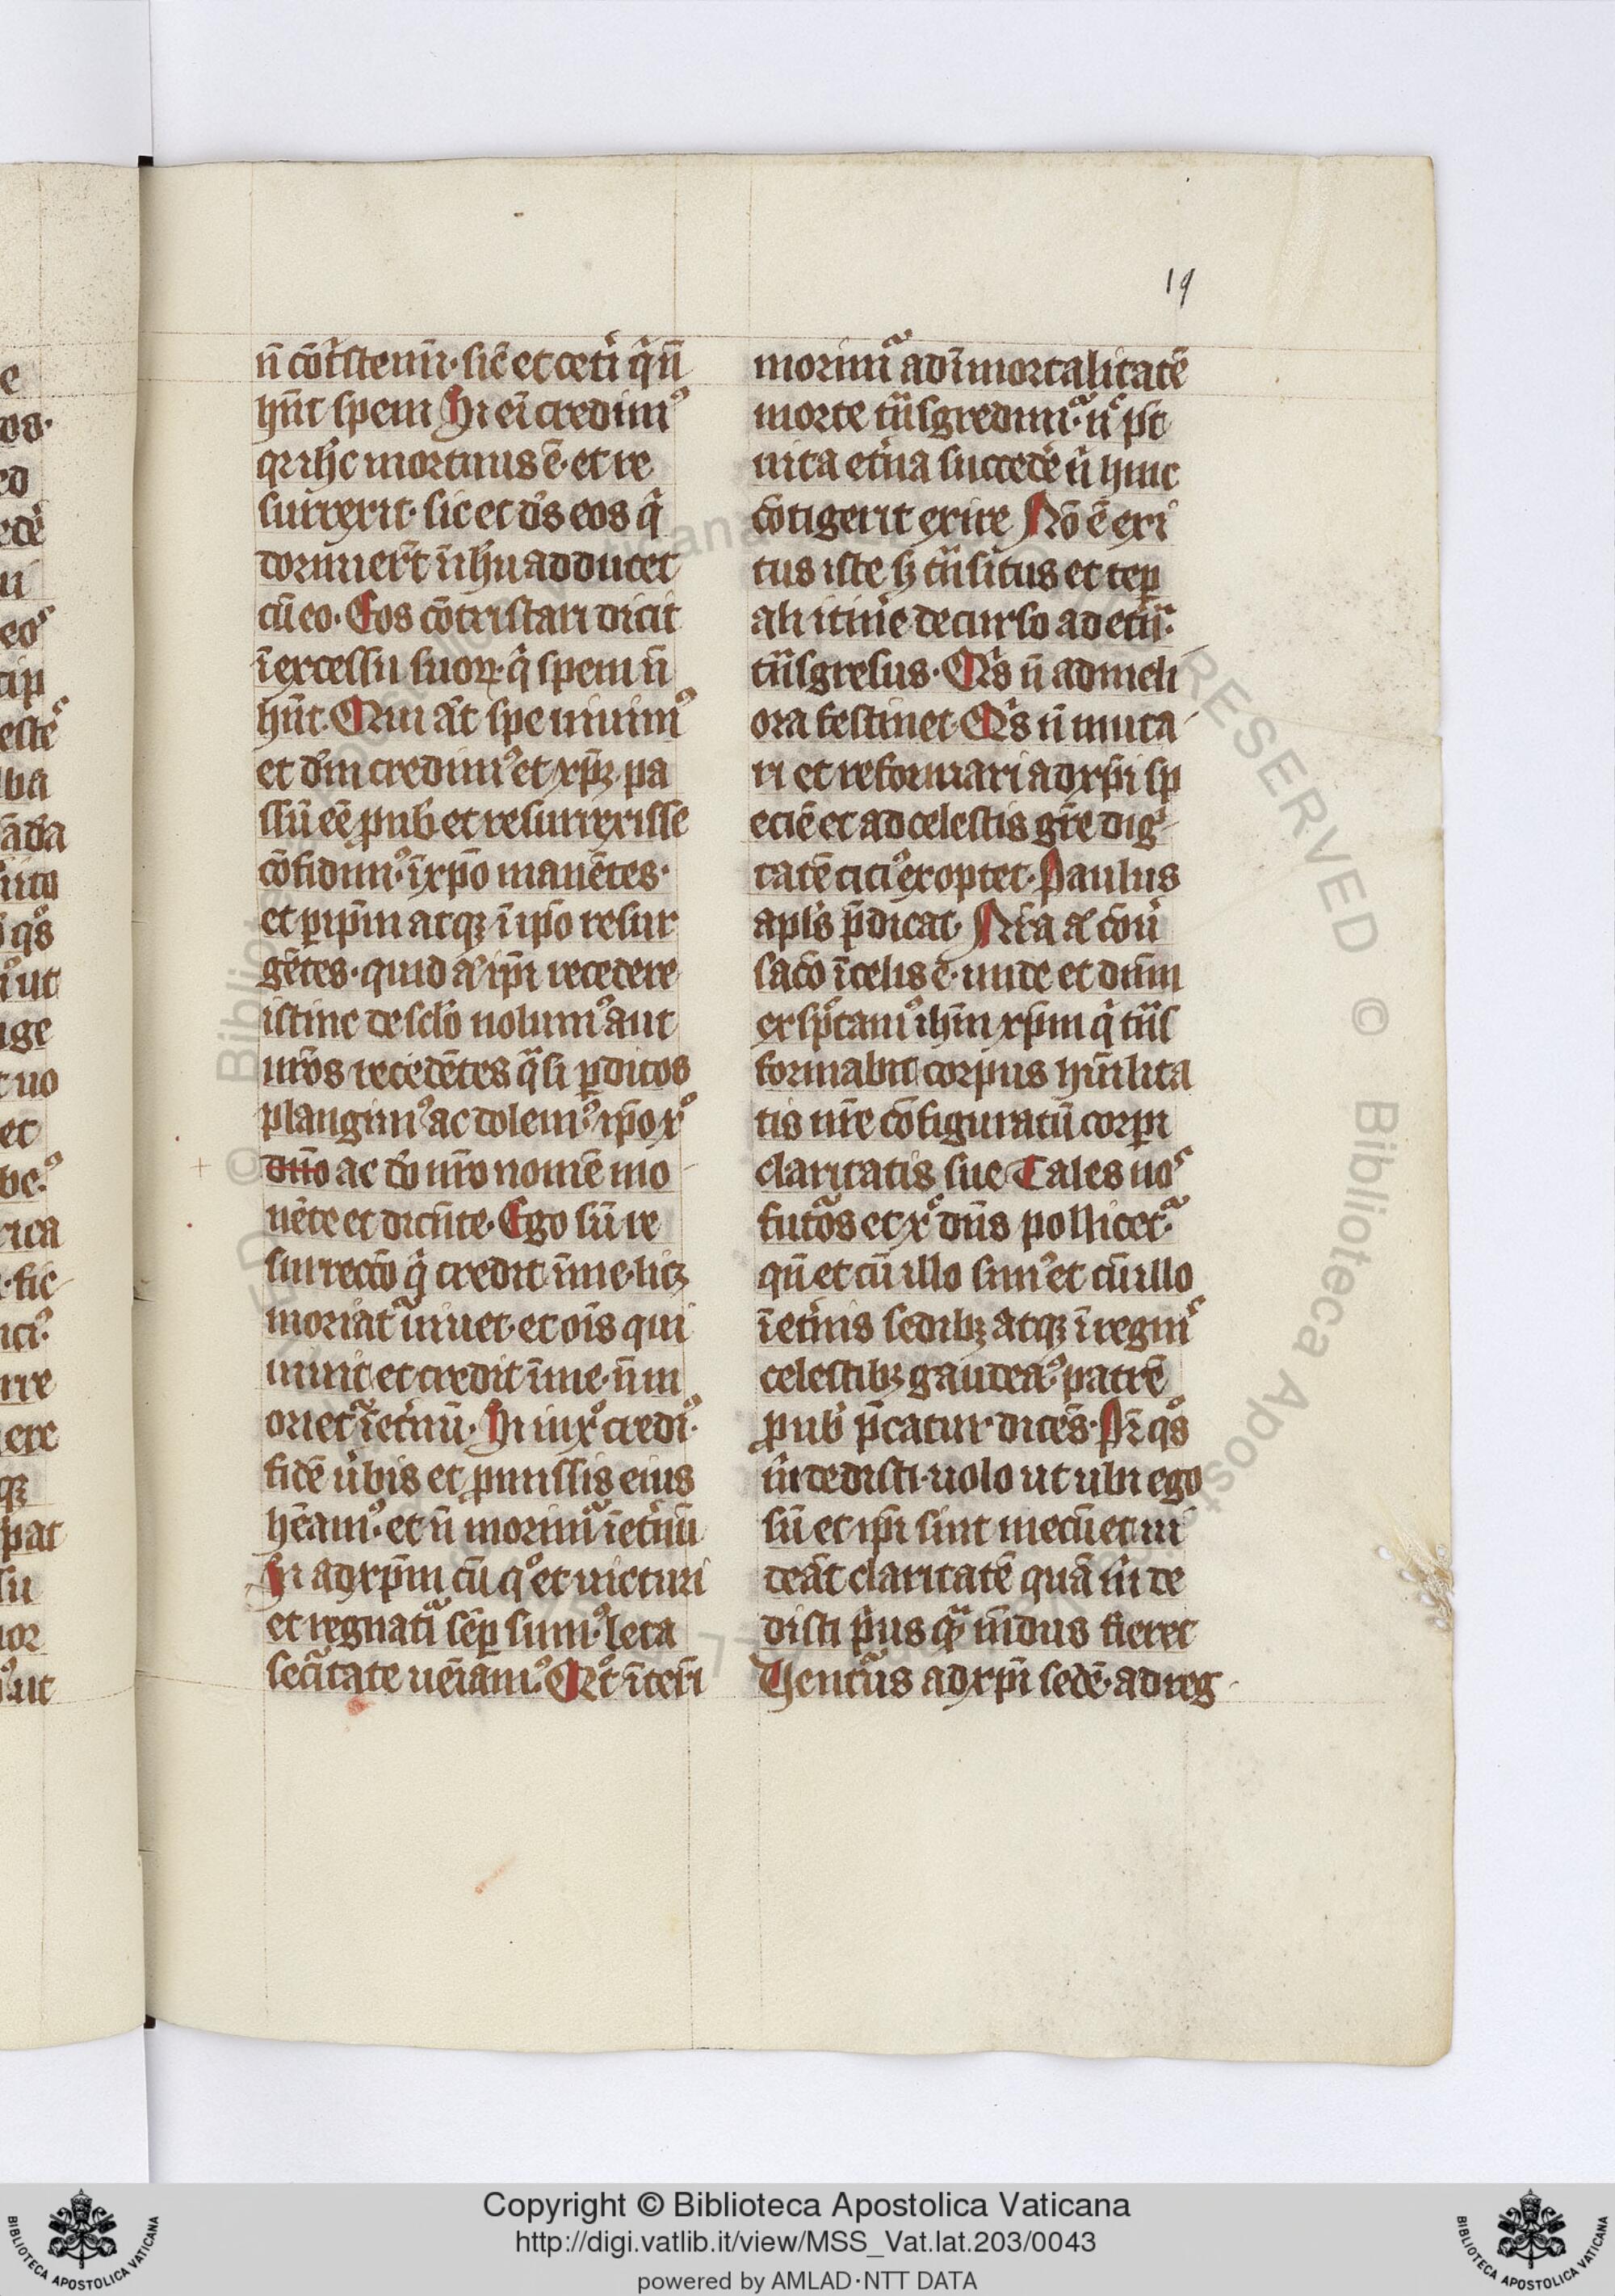 19
n̄ cōt͛stemī͛· sic̄ et cet͛i q͛ n̄
hn̄t spem Si ei̅ credim᷒
qr ih̄c mortuus ē· et re
surrexit· sic et d̄s eos q͛
dormier̄t ī ih̄u adducet
cū eo· Eos cōtristari dicit
ī excessu suoꝝ· q͛ spem n̄
hn̄t· Qui āt spe uiuim᷒
et dm̄ credim᷒ et xp̄ꝫ pa
ssū eē ꝓ nob̄ et resurrexisse
cōfidim᷒· ī xp̄o manētes·
et ꝑ ip̄m atqꝫ ī ip̄o resur
gētes· quid aͥ ip̄i recedere
istinc de sc̄lo nolum᷒ aut
nr̄os recedētes qͣsi ꝑditos
plangim᷒ ac dolem᷒· ip̄o xͦ
dn̄o ac do̅ nr̄o nomē mo
nēte et dicēte· Ego sū re
surrecc̄o q͛ credit ī me· licꝫ
moriatᷓ uiuet· et oīs qui
uiuit et credit ī me· n̄ m
orietᷓ ī et͛nū· Si in xͦ credi᷒·
fidē u͛bis et ꝓmissis eius
hēam᷒· et n̄ morimᷓ ī et͛nū
Si ad xp̄m cū qͦ et uicturi
et regnatᷓi sēꝑ sum᷒· leta
secᷓitate ueīam᷒· Qͦt īteri
morimᷓ ad īmortalitatē
morte tn̄sgredimᷓ· n̄ pͭ
uita et͛na succede͛ n͛ hinc
cōtigerit exire Nō ē exi
tus iste sꝫ tn̄situs et teꝑ
ali itine͛ decurso ad et͛nᷓ·
tn̄sgresus· Q͛s n̄ ad meli
ora festinet· Q͛s n̄ muta
ri et reformari ad xp̄i sp
eciē et ad celestis gr̄e dig
tatē citi᷒ exoptet· Paulus
apl̄s p̄dicat· Nr̄a aͥ cōu͛
sac̄o ī celis ē· unde et dn̄m
exsp̄ctam᷒ ih̄m xp̄m q͛ tn̄s
formabit corpus hūilita
tis nr̄e cōfiguratū corpi
claritatis sue Tales noͨ
futᷓos et xͦ dn̄s pollicetᷓ·
qn̄ et cū illo sim᷒ et cū illo
ī et͛nis sedibꝫ atqꝫ ī regniͨ
celestibꝫ gaudea᷒· patrē
ꝓ nob̄ p̄catur· dicēs· Pr̄ qͦs
m͛ dedisti· uolo ut ubi ego
sū et ip̄i sint mecū et ui
deāt claritatē quā m͛ de
disti p͛us qͣ mūdus fieret
Uentᷓus ad xp̄i sedē· ad reg
Copyright © Biblioteca Apostolica Vaticana
http://digi.vatlib.it/view/MSS_Vat.lat.203/0043
powered by AMLAD·NTT DATA